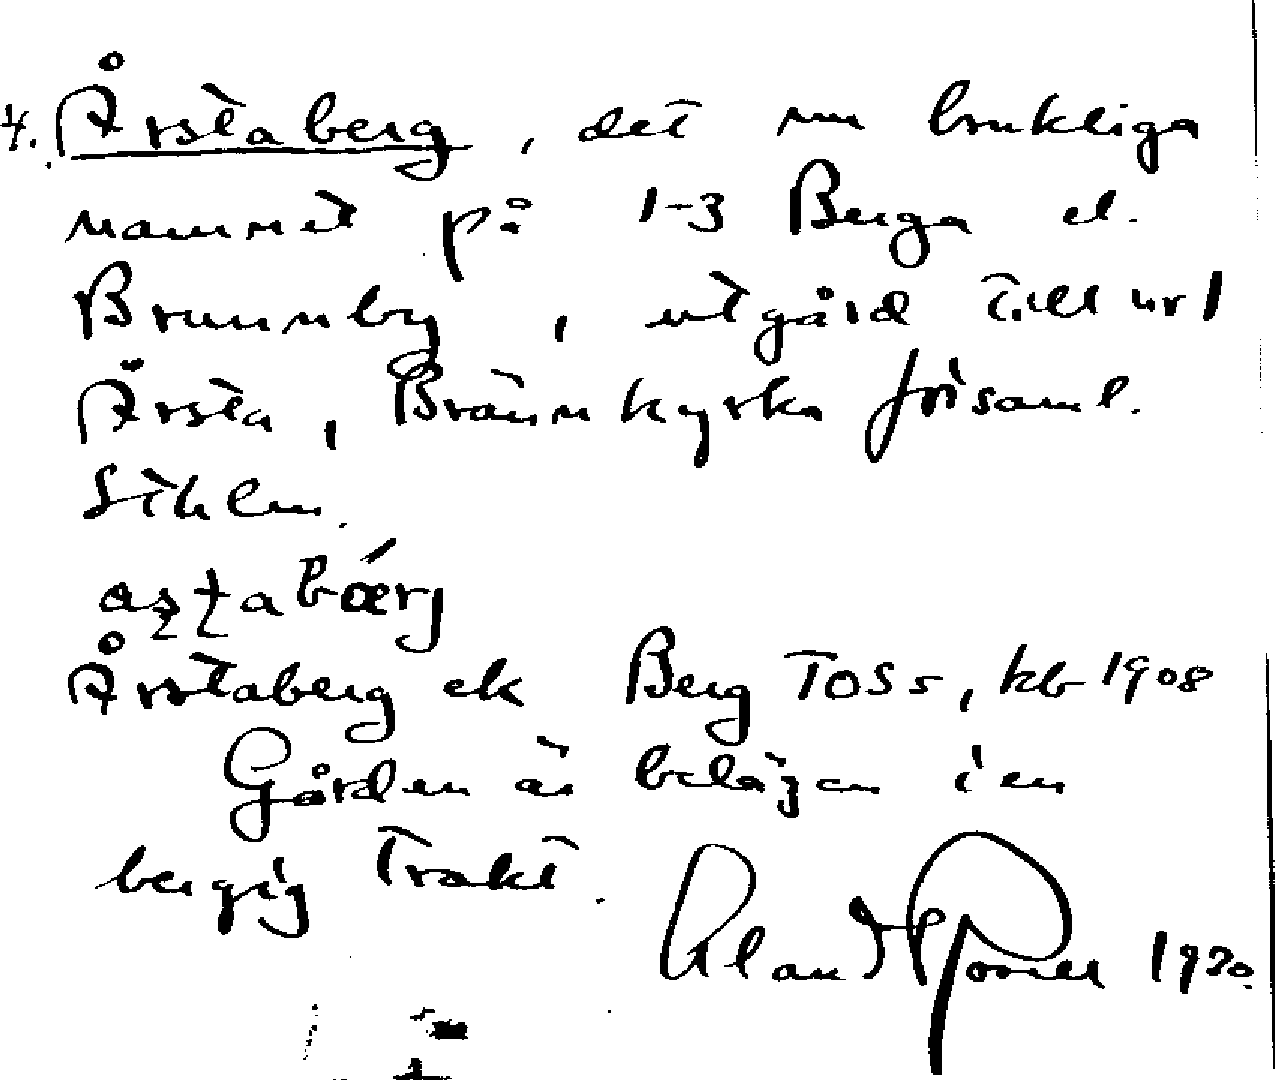 4. Årstaberg, det nu brukliga
namnet på 1-3 Berga el.
Brunnby, utgård till nr 1
Årsta, Brännkyrka församl.
Sthlm.
åṣṭabærj
Årstaberg ek Berg TOSs, kb 1908
Gården är belägen i en
bergig trakt.
Alan 1930.